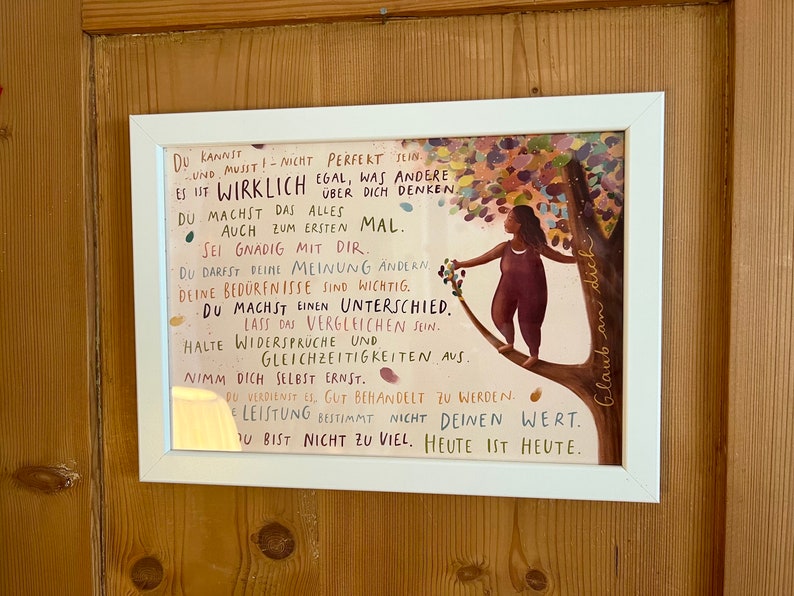 DU KANNST
UND MUSST! - NICHT PERFEKT SEIN.
ES IST WIRKLICH EGAL, WAS ANDERE
ÜBER DICH DENKEN.
DU MACHST DAS ALLES
AUCH ZUM ERSTEN MAL.
SEI GNÄDIG MIT DIR.
DU DARFST DEINE MEINUNG ÄNDERN.
DEINE BEDÜRFNISSE SIND WICHTIG.
DU MACHST EINEN UNTERSCHIED.
LASS DAS VERGLEICHEN SEIN.
HALTE WIDERSPRÜCHE UND
GLEICHZEITIGKEITEN AUS.
NIMM DICH SELBST ERNST.
DU VERDIENST ES, GUT BEHANDELT ZU WERDEN.
LEISTUNG BESTIMMT NICHT DEINEN WERT.
DU BIST NICHT ZU VIEL. HEUTE IST HEUTE.
Glaub an dich